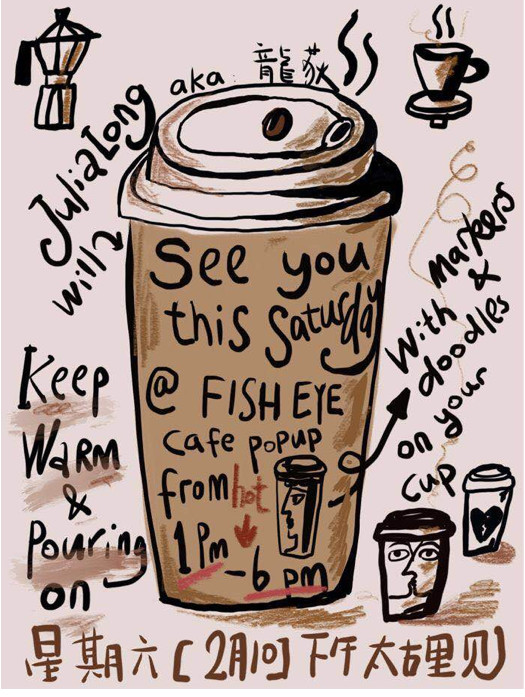 aka: 龍荻
Julia Long
will
See you
this Saturday
@ FISH EYE
cafe popup
from hot
1 pm
-6 pm
With markers
& doodles
on your
cup
Keep
Warm
&
Pouring
on
星期六【2月10】下午太古里见